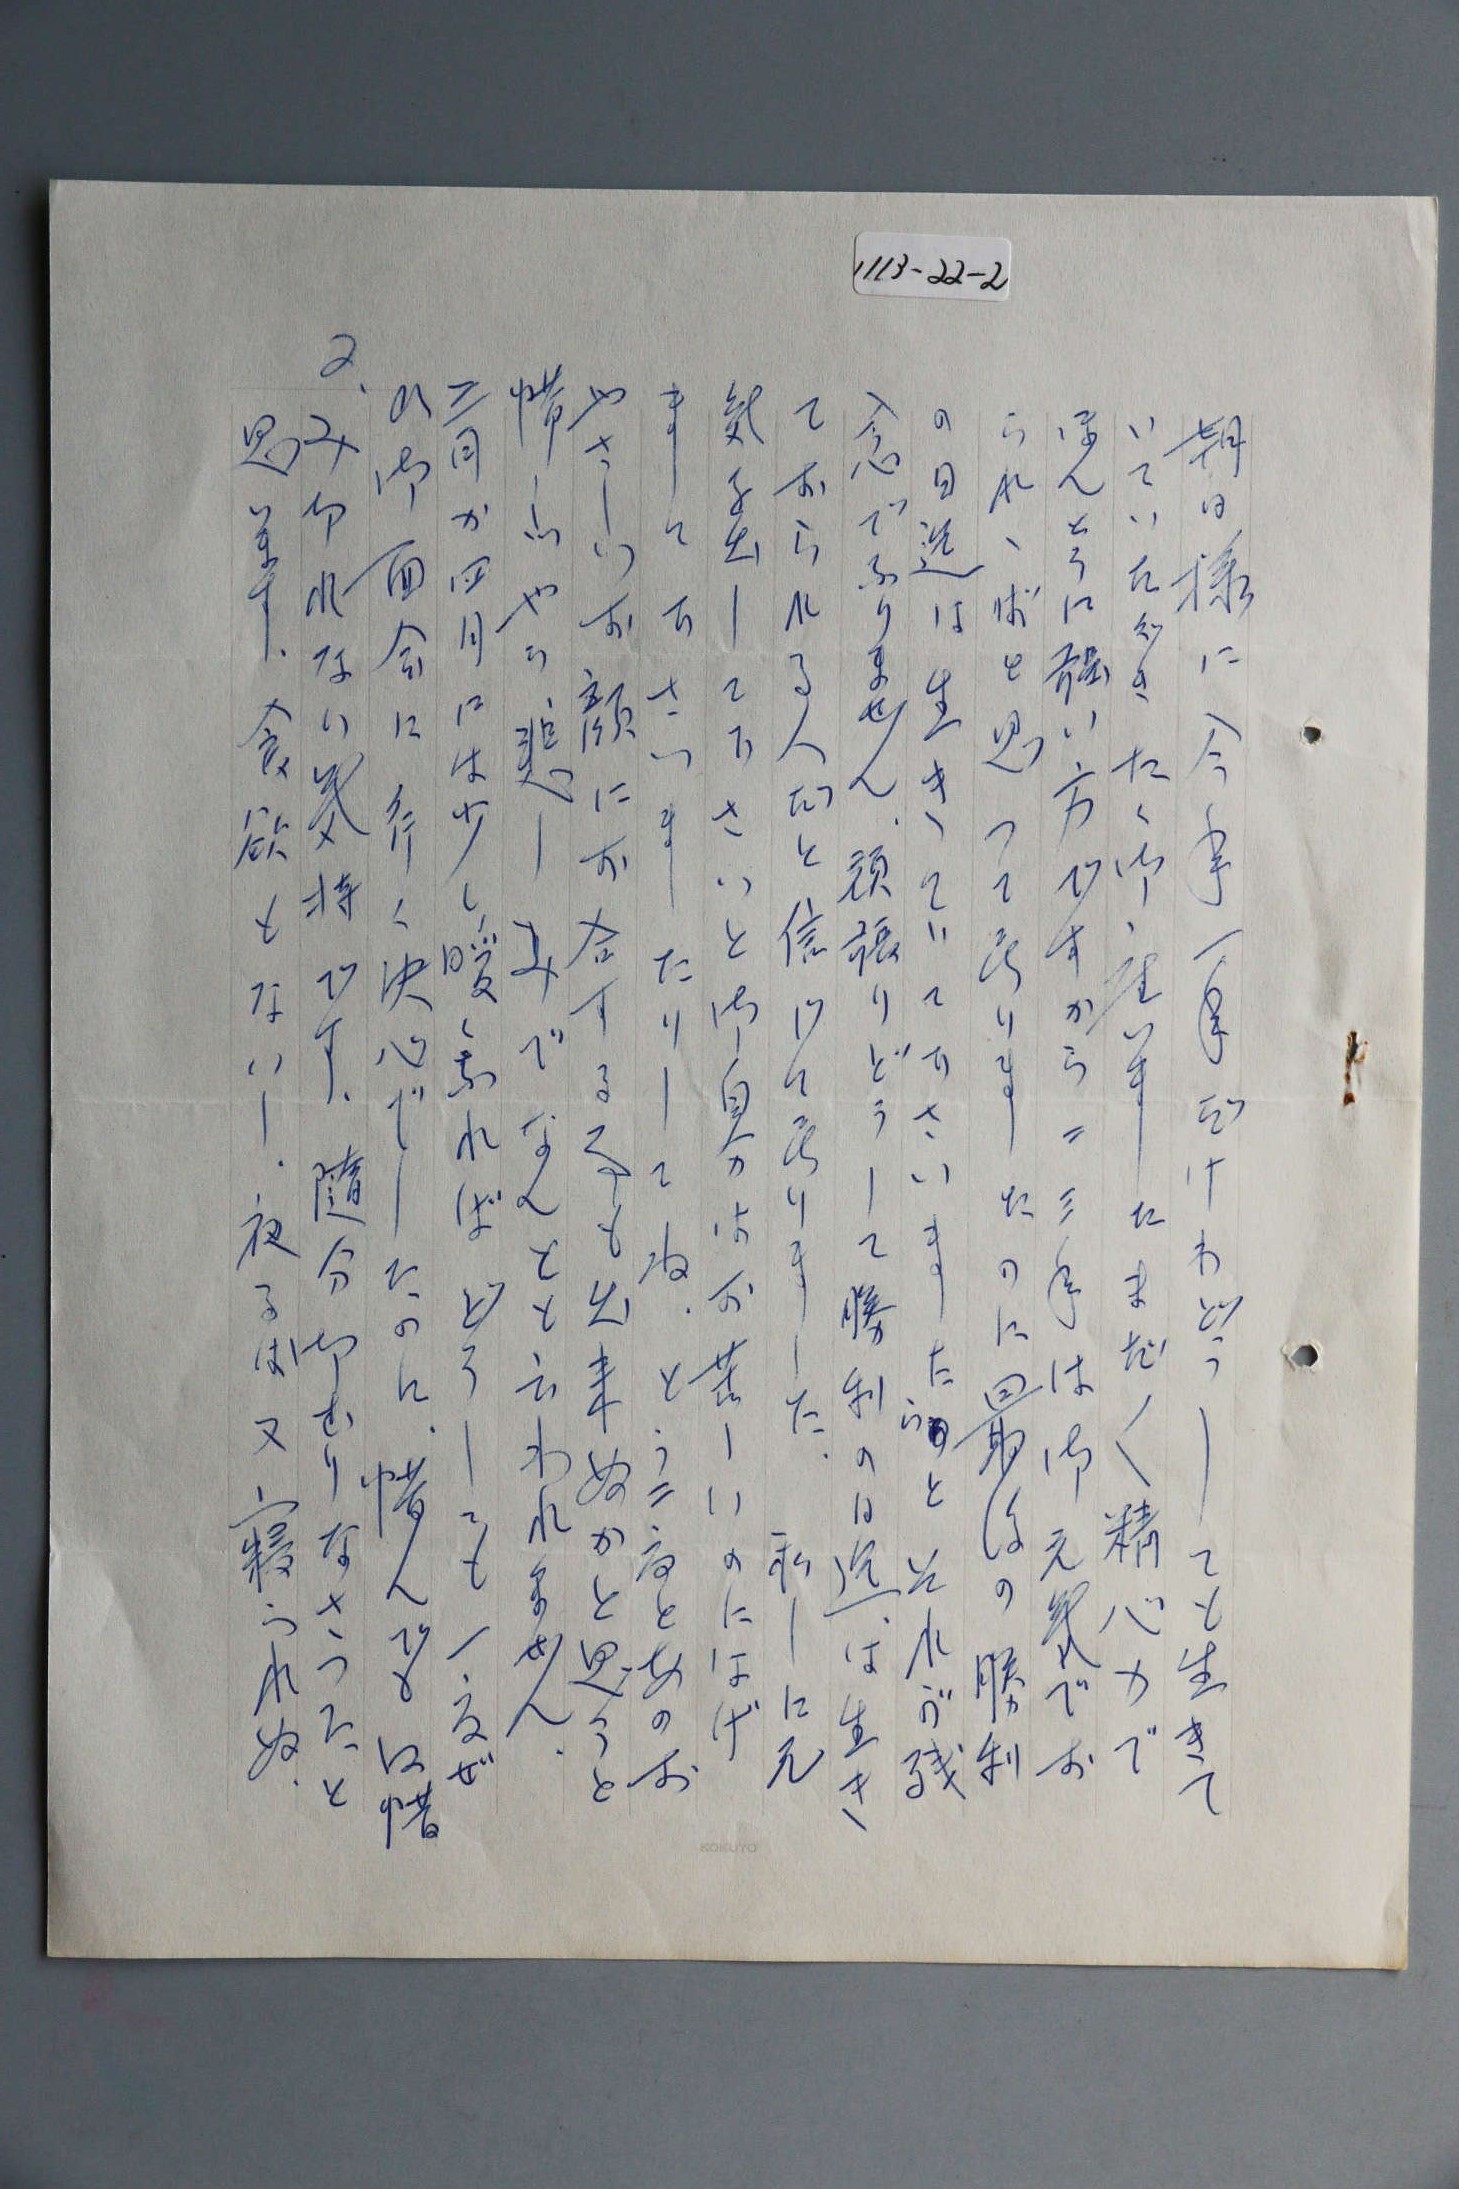 1113-22-2
朝日様に今年一年だけわどうしても生きて
いていただきたく御座いましたまだ〱精心力で
ほんとうに強い方ですから二三年は御元気でお
られゝばと思って居りましたのに最後の勝利
の日迠は生きゝていて下さいましたらと それが残
念でなりません、頑張りどうして勝利の日迠は生き
ておられる人だと信じて居りました、 私しに元
気を出して下さいと御自身はお苦しいのにはげ
まして下さいましたりしてね、とう二度とあのお
やさしいお顔にお合する事も出来ぬかと思うと
惜しいやら、悲しみでなんとも云われません、
三月か四月には少し暖くなればどうしても一度ぜ
ひ御面会に行く決心でしたのに、惜んでも惜
みきれない気持です、随分御むりなさったと
思います、食欲もないし、夜るは又寝られぬ、
2、
KOKUYO